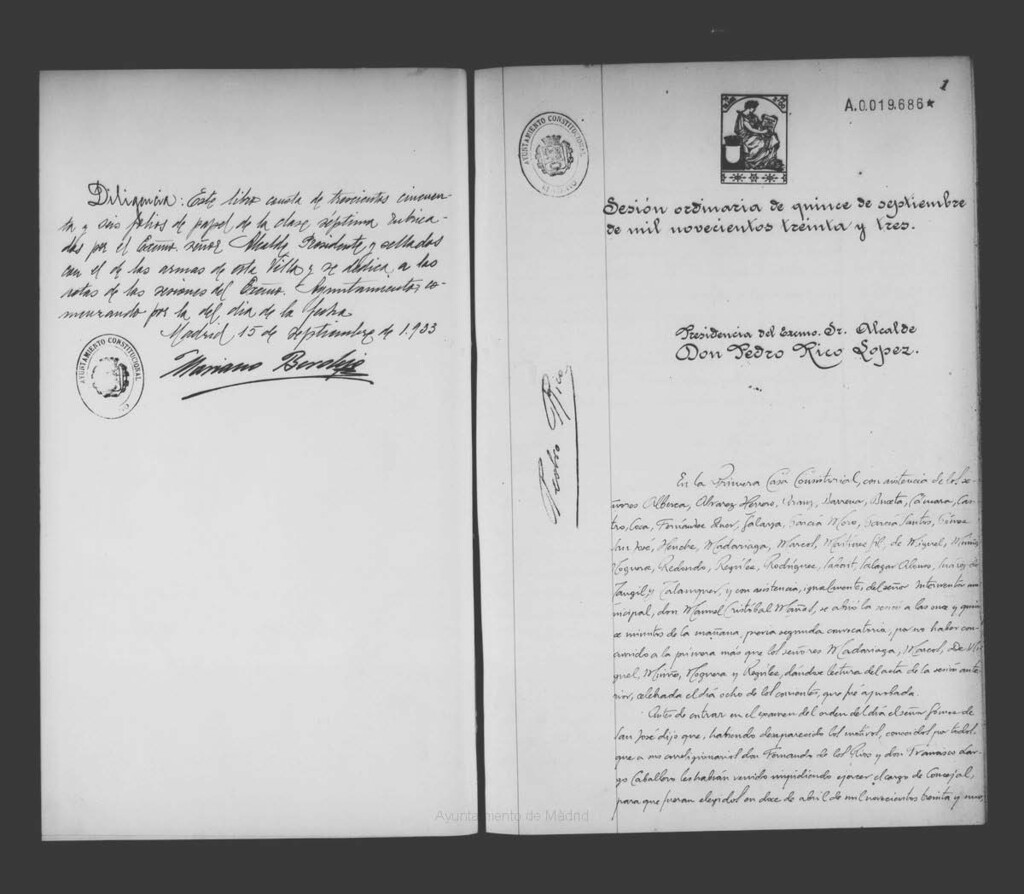 Diligencia: Este libro consta de trescientos cincuen-
ta y seis folios de papel de la clase séptima rubrica-
dos por el Excmo. señor Alcalde Presidente y sellados
con el de las armas de esta Villa y se dedica a las
actas de las sesiones del Excmo. Ayuntamiento, co-
menzando por la del dia de la fecha
Madrid 15 de septiembre de 1.933
Mariano
AYUNTAMIENTO CONSTITUCIONAL
AYUNTAMIENTO CONSTITUCIONAL
Pedro Rico
1
A.0.019.686*
Sesión ordinaria de quince de septiembre
de mil novecientos treinta y tres.
Presidencia del Excmo. Sr. Alcalde
Don Pedro Rico Lopez.
En la Primera Casa Consistorial, con asistencia de los se-
ñores Alberca, Alvarez Herrero, Arauz, Barrena, Buceta, Cámara, Can-
tos, Coca, Fernández Quer, Galarza, García Moro, García Santos, Gómez
San José, Henche, Madariaga, Marcos, Martínez Gil, de Miguel, Muiño
Noguera, Redondo, Regúlez, Rodríguez, Saborit, Salazar Alonso, Suárez de
Tangil y Talanquer, y con asistencia, igualmente, del señor Interventor mu-
nicipal, don Manuel Cristóbal Mañas, se abrió la sesión a las once y quin-
ce minutos de la mañana, previa segunda convocatoria, por no haber con-
currido a la primera más que los señores Madariaga, Marcos, De Mi-
guel, Muiño, Noguera y Regúlez, dándose lectura del acta de la sesión ante-
rior, celebrada el día ocho de los corrientes, que fué aprobada.
Antes de entrar en el examen del orden del día el señor Gómez de
San José dijo que, habiendo desaparecido los motivos, conocidos por todos,
que a sus correligionarios don Fernando de los Ríos y don Francisco Lar-
go Caballero les habían venido impidiendo ejercer el cargo de Concejal,
para que fueran elegidos en doce de abril de mil novecientos treinta y uno,
Ayuntamiento de Madrid